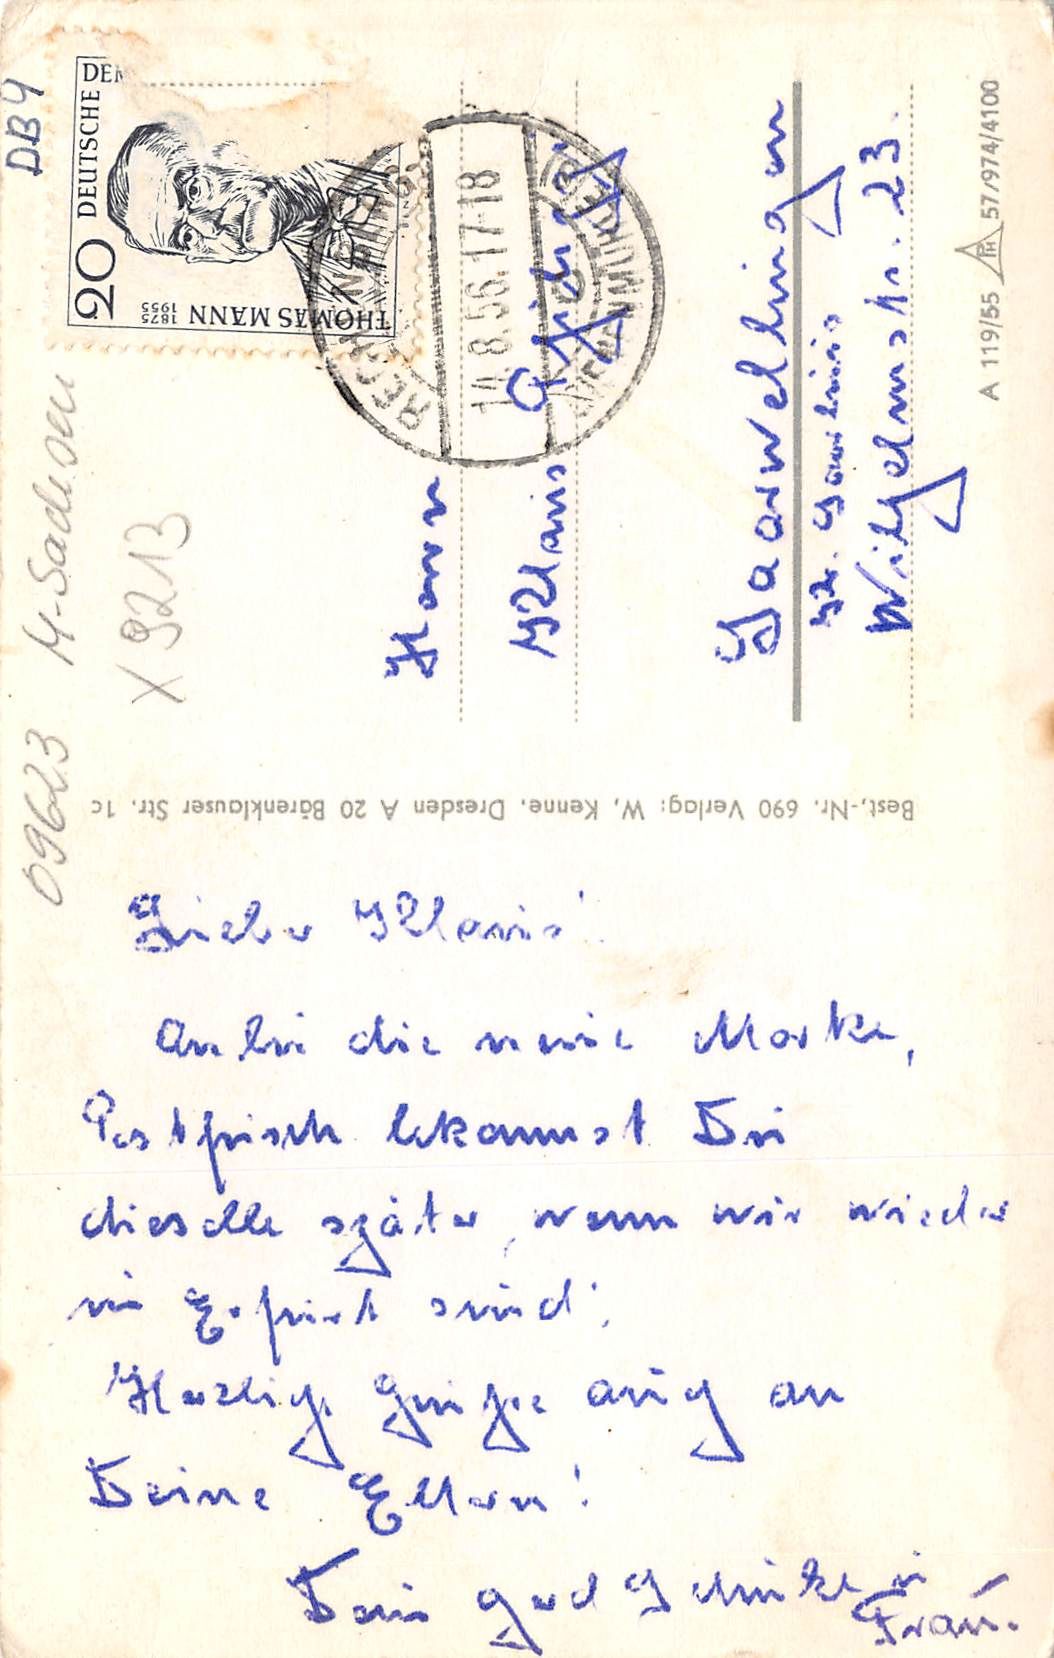 DB 4
DEUTSCHE DEM
20
THOMAS MANN
1875
1955
14.8.56.17-18
09623 M-Sachsen
X 9213
Herrn
Klaus
Saarwellingen
Kr. Saarlouis
Wilhelmstr. 23.
A 119/55 57/974/4100
Best.-Nr. 690 Verlag: W. Kenne, Dresden A 20 Bärenklauser Str. 1c
Lieber Klaus!
Anbei die neue Marke,
Postfrisch bekommst Du
dieselbe später, wenn wir wieder
in Erfurt sind.
Herzliche Grüße auch an
Deine Eltern!
Dein Gerd u
Frau.